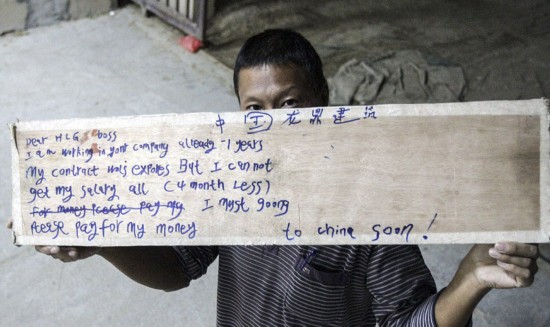 中国 龙鼎建筑
Dear HLG boss
I am working in your company already 1 years
My contract was expores But I can not
get my salary all (4 month Less)
For money Please pay my I must going
Please pay for my money to china soon!